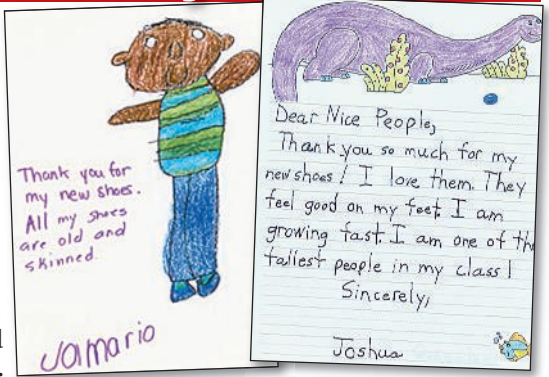 Thank you for
my new shoes.
All my shoes
are old and
skinned.
Jamario
Dear Nice People,
Thank you so much for my
new shoes! I love them. They
feel good on my feet. I am
growing fast. I am one of the
tallest people in my class!
Sincerely,
Joshua